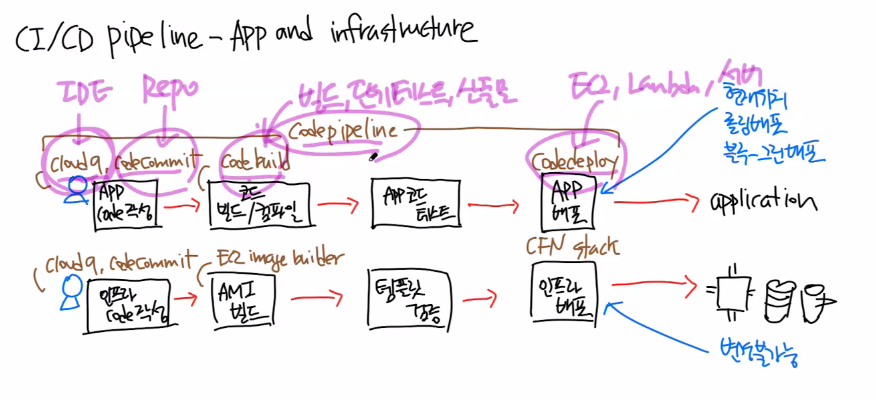 CI/CD pipeline - App and infrastructure
IDE
Repo
빌드, 단위테스트, 산출물
EC2, Lambda, 서버
현재위치
롤링배포
블루-그린배포
Codepipeline
Cloud9, CodeCommit
Codebuild
Codedeploy
APP
Code작성
코드
빌드/컴파일
APP코드
테스트
APP
배포
application
Cloud9, CodeCommit
EC2 image builder
CFN stack
인프라
Code작성
AMI
빌드
템플릿
검증
인프라
배포
변성불가능